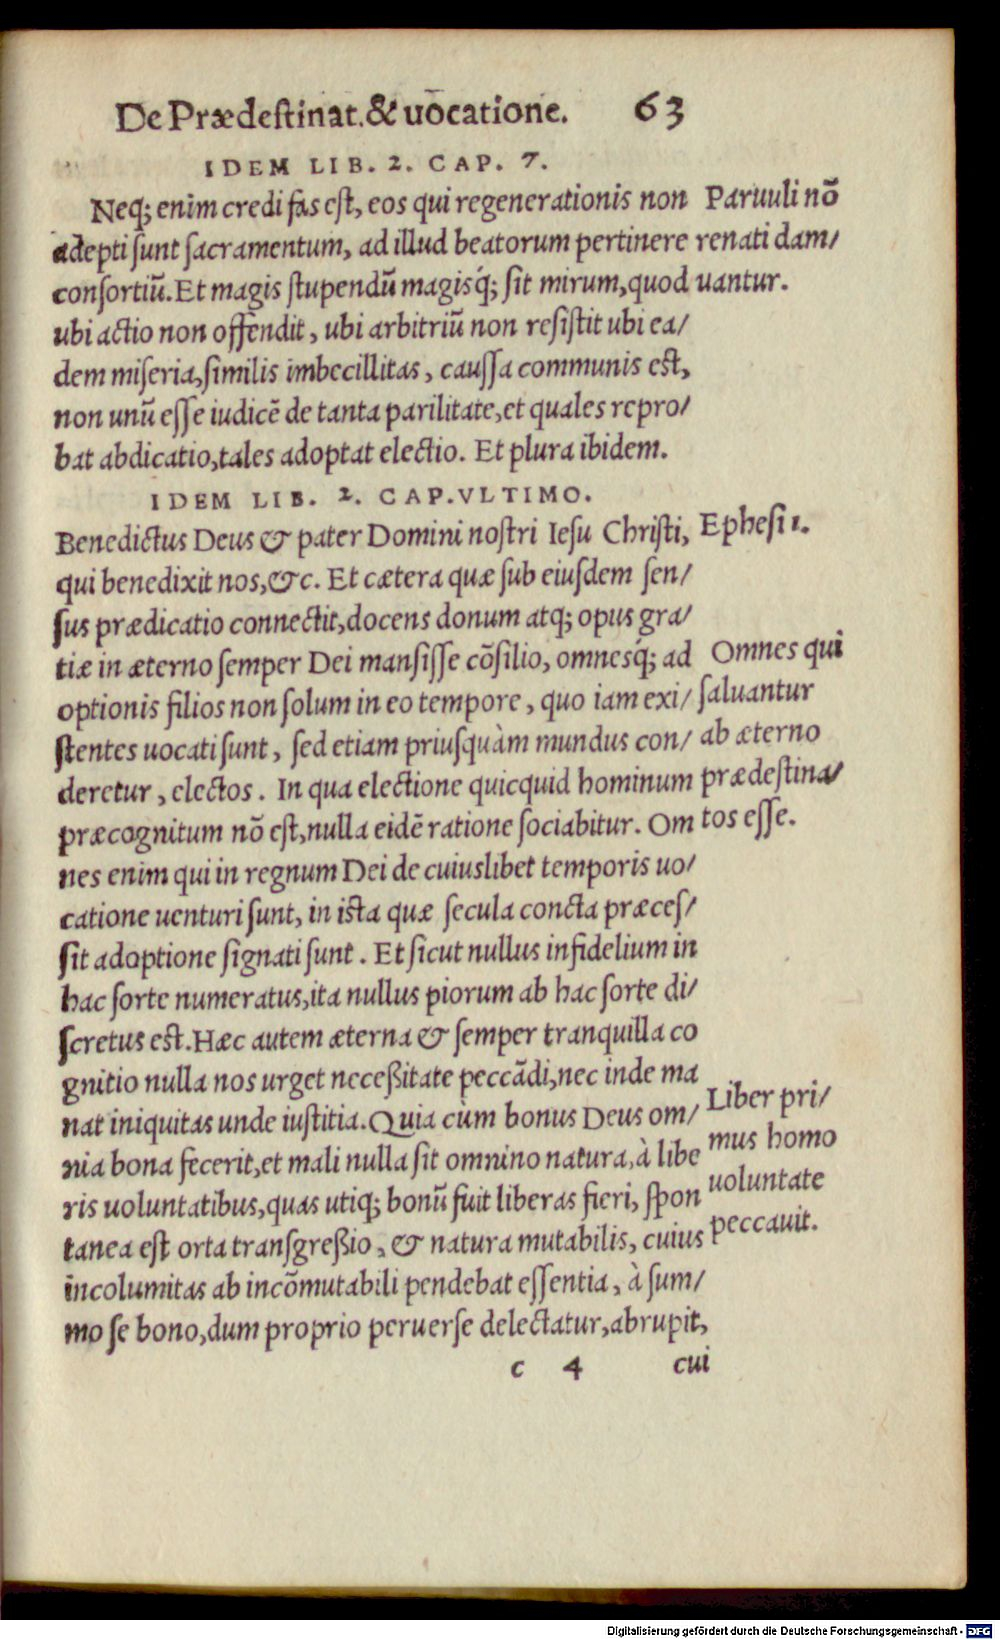 De Prædestinat. & uocatione. 63
IDEM LIB. 2. CAP. 7.
Neq; enim credi fas est, eos qui regenerationis non
adepti sunt sacramentum, ad illud beatorum pertinere
consortiū. Et magis stupendū magisq́; sit mirum, quod
ubi actio non offendit, ubi arbitriū non resistit ubi ea/
dem miseria, similis imbecillitas, caussa communis est,
non unū esse iudicē de tanta parilitate, et quales repro/
bat abdicatio, tales adoptat electio. Et plura ibidem.
Paruuli nō
renati dam/
uantur.
IDEM LIB. 2. CAP. VLTIMO.
Benedictus Deus & pater Domini nostri Iesu Christi,
qui benedixit nos, &c. Et cætera quæ sub eiusdem sen/
sus prædicatio connectit, docens donum atq; opus gra/
tiæ in æterno semper Dei mansisse cōsilio, omnesq́; ad
optionis filios non solum in eo tempore, quo iam exi/
stentes uocati sunt, sed etiam priusquàm mundus con/
deretur, electos. In qua electione quicquid hominum
præcognitum nō est, nulla eidē ratione sociabitur. Om
nes enim qui in regnum Dei de cuiuslibet temporis uo/
catione uenturi sunt, in ista quæ secula concta præces/
sit adoptione signati sunt. Et sicut nullus infidelium in
hac sorte numeratus, ita nullus piorum ab hac sorte di/
scretus est. Hæc autem æterna & semper tranquilla co
gnitio nulla nos urget neceßitate peccādi, nec inde ma
nat iniquitas unde iustitia. Quia cùm bonus Deus om/
nia bona fecerit, et mali nulla sit omnino natura, à libe
ris uoluntatibus, quas utiq; bonū fuit liberas fieri, spon
tanea est orta transgreßio, & natura mutabilis, cuius
incolumitas ab incōmutabili pendebat essentia, à sum/
mo se bono, dum proprio peruerse delectatur, abrupit,
Ephesi 1.
Omnes qui
saluantur
ab æterno
prædestina/
tos esse.
Liber pri/
mus homo
uoluntate
peccauit.
c 4 cui
Digitalisierung gefördert durch die Deutsche Forschungsgemeinschaft - DFG